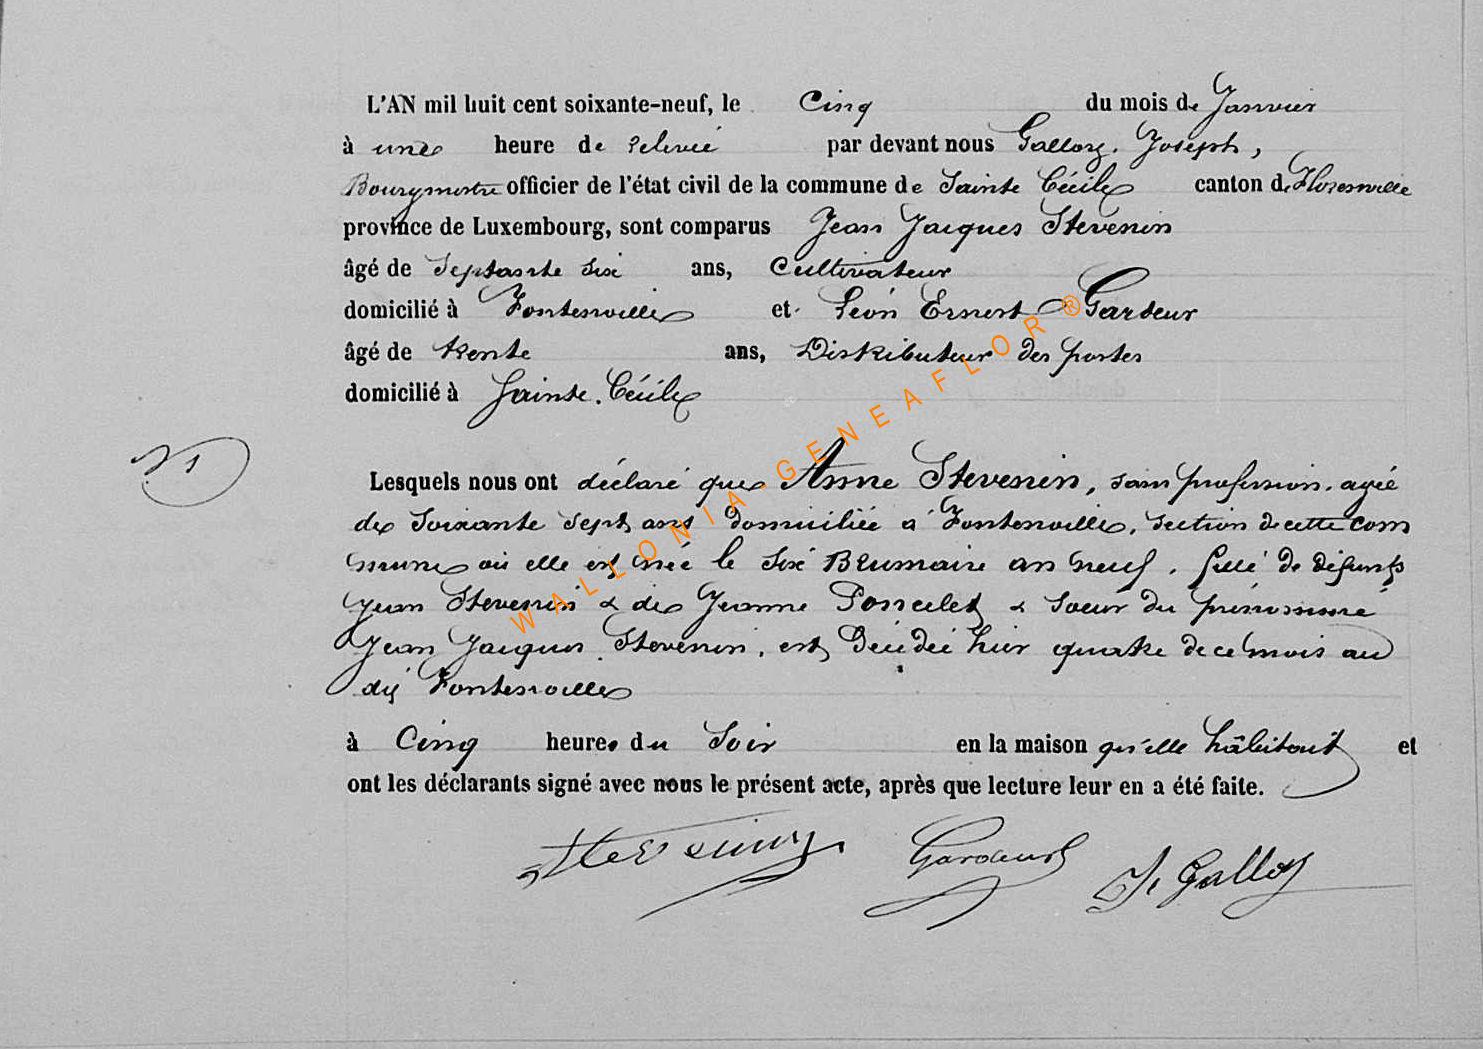 L'AN mil huit cent soixante-neuf, le Cinq du mois de Janvier
à une heure de relevée par devant nous Galloy, Joseph,
Bourgmestre officier de l'état civil de la commune de Sainte Cécile canton de Florenville
province de Luxembourg, sont comparus Jean Jacques Stevenin
âgé de Septante six ans, Cultivateur
domicilié à Fontenoille et Léon Ernest Gardeur
âgé de trente ans, Distributeur des postes
domicilié à Sainte. Cécile
Lesquels nous ont déclaré que Anne Stevenin, sans profession, agée
de soixante sept ans domiciliée à Fontenoille, section de cette com
mune où elle est née le six Brumaire an neuf, fille de défunts
Jean Stevenin & de Jeanne Poncelet & soeur du prénommé
Jean Jacques Stevenin, est décédée hier quatre de ce mois au
dit Fontenoille
à Cinq heures du Soir en la maison qu'elle habitait et
ont les déclarants signé avec nous le présent acte, après que lecture leur en a été faite.
Stevenin Gardeur J. Galloy
WALLONIA-GENEAFLOR®